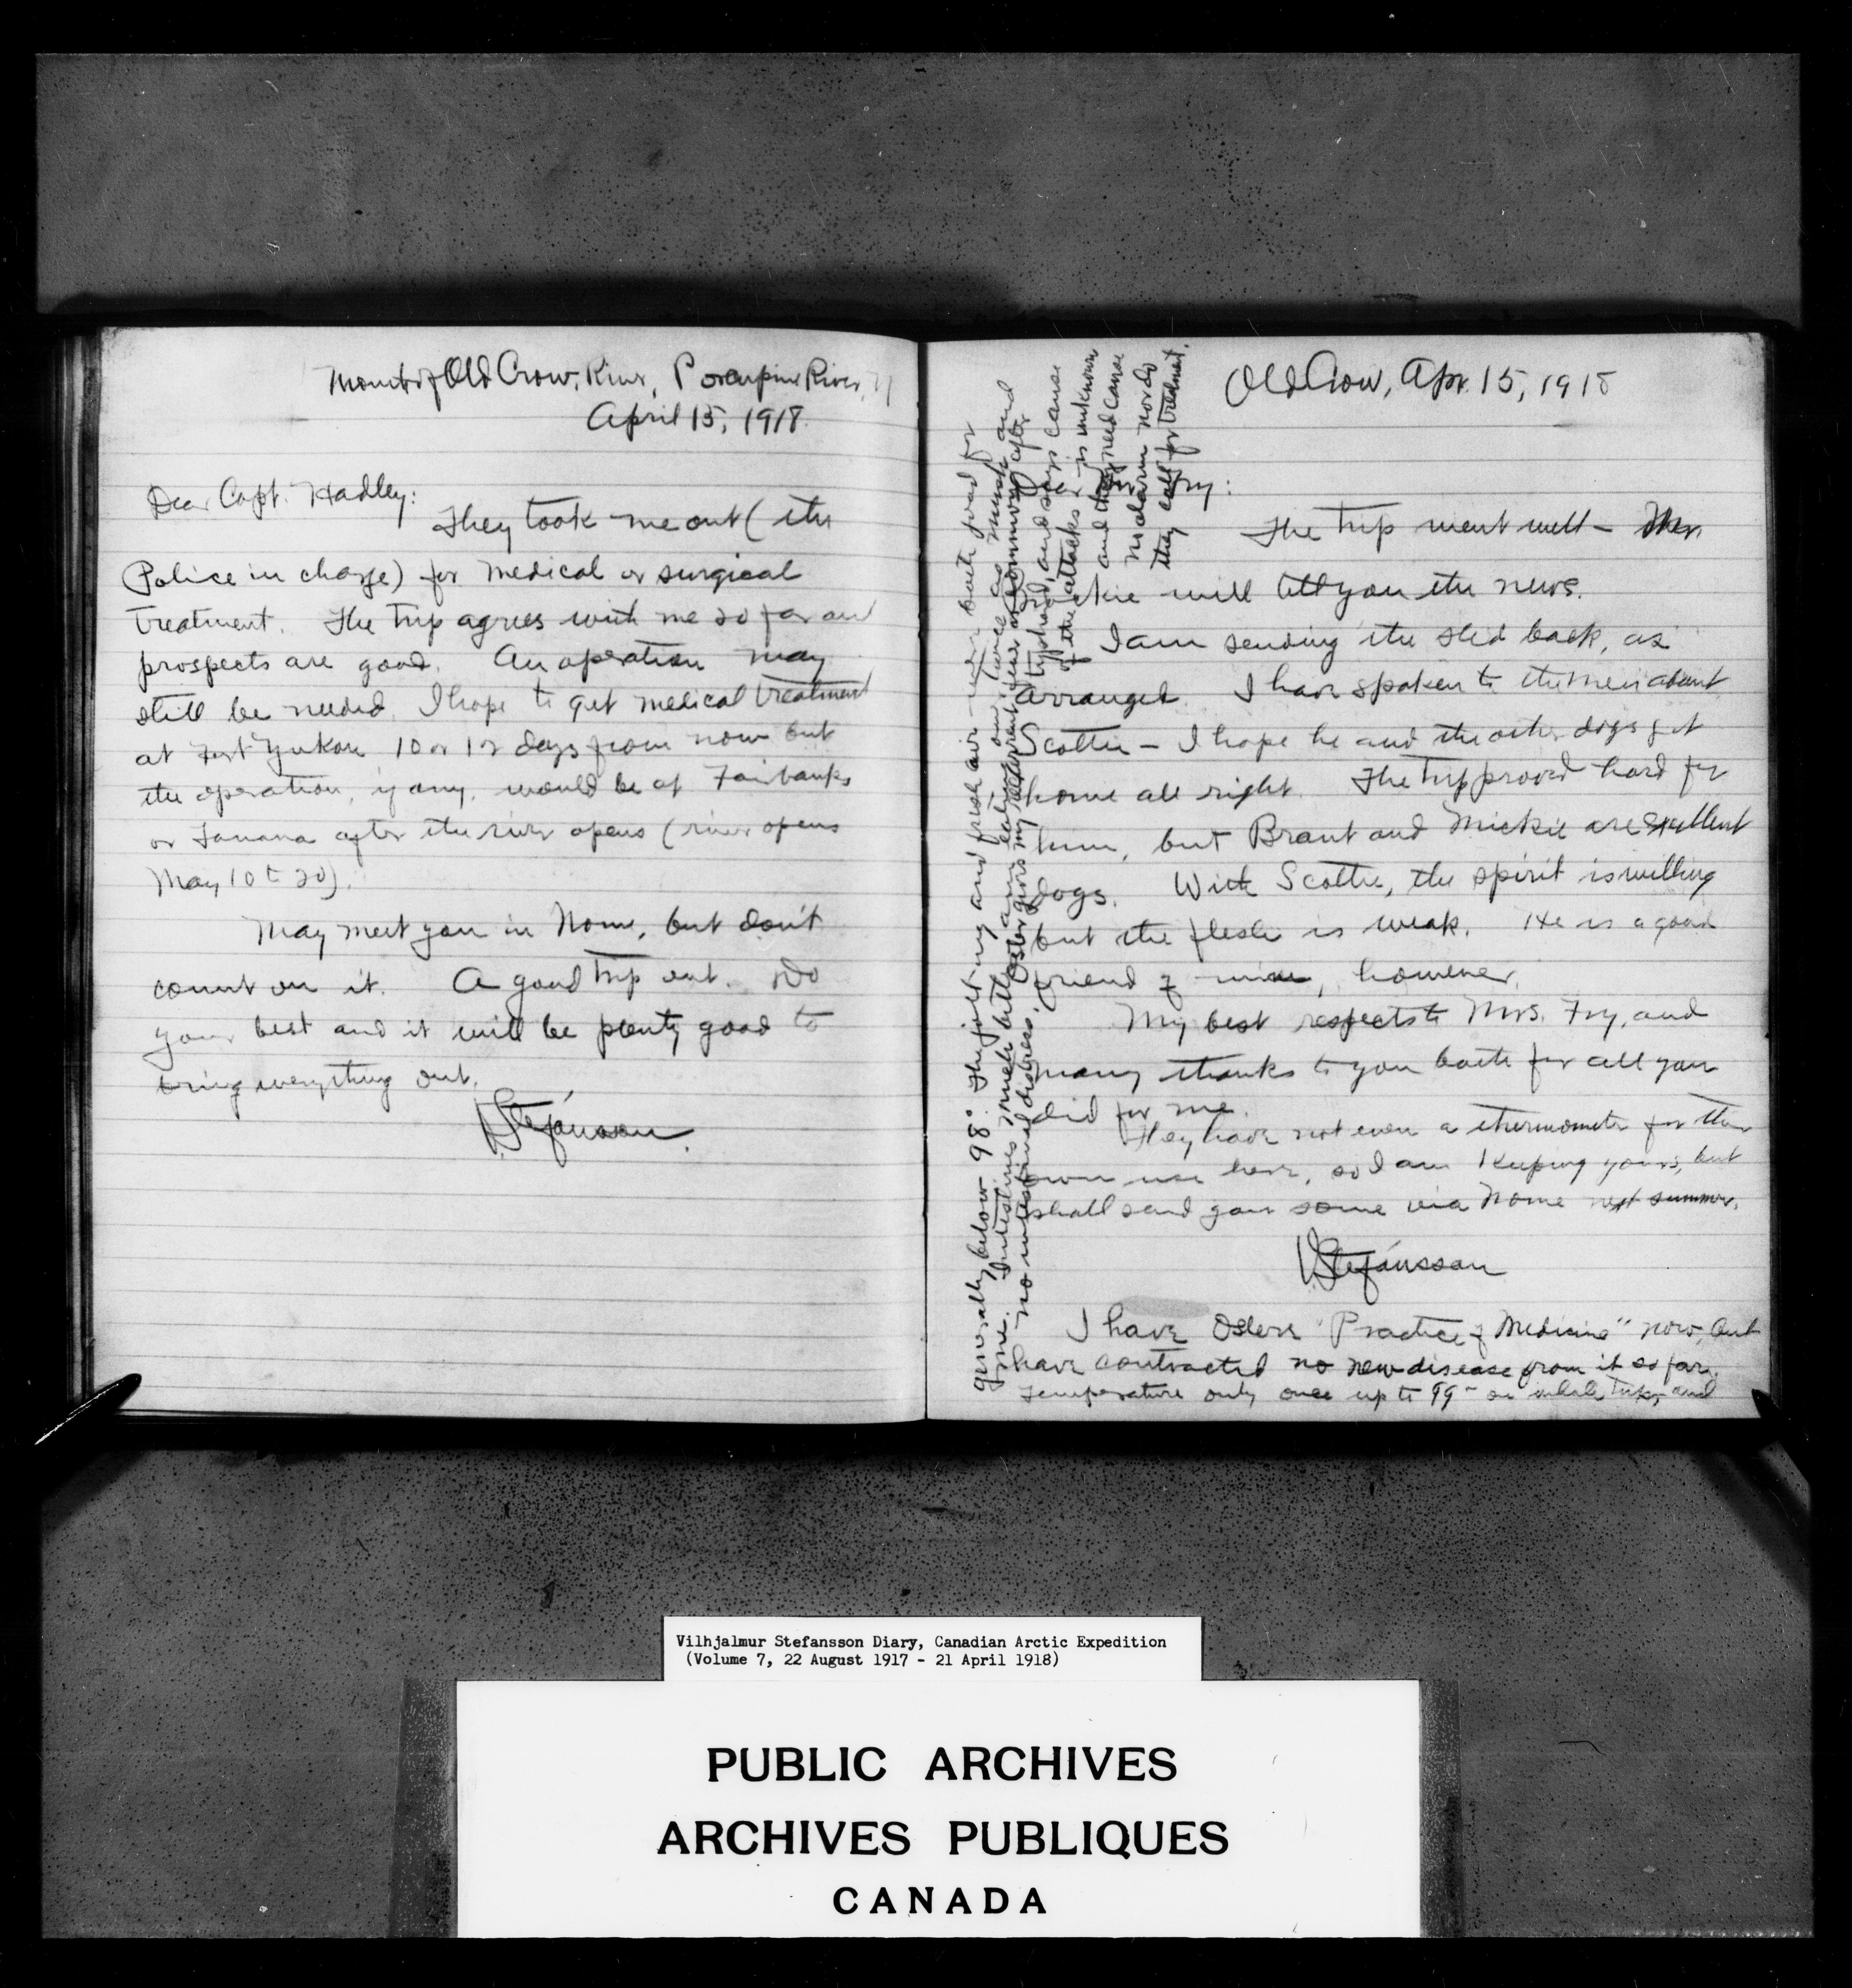 Mouth of Old Crow, River, Porcupine River,
April 15, 1918.
Dear Capt. Hadley:
They took me out (the
Police in charge) for medical or surgical
treatment. The trip agrees with me so far and
prospects are good. An operation may
still be needed. I hope to get medical treatment
at Fort Yukon 10 or 12 days from now but
the operation, if any, would be at Fairbanks
or Tanana after the river opens (river opens
May 10 to 20).
May meet you in Nome, but don't
count on it. A good trip out. Do
your best and it will be plenty good to
bring everything out.
VStefánsson.
Old Crow, Apr. 15, 1918
Fry:
The trip went well –
will tell you the news.
I am sending the sled back, as
arranged. I have spoken to the men about
Scottie – I hope he and the other dogs get
home all right. The trip proved hard for
him, but Brant and Mickie are excellent
dogs. With Scottie, the spirit is willing
but the flesh is weak. He is a good
friend of mine, however.
My best respects to Mrs. Fry, and
many thanks to you both for all you
did for me.
They have not even a thermometer for their
own use here, so I am keeping yours, but
shall send you some via Nome next summer.
VStefánsson
I have Oslers "Practice of Medicine" now, but
have contracted no new disease from it so far.
Temperature only once up to 99° on whole trip, and
generally below 98°. The jolting and fresh air were both good for
me. Intestines much better and eating over twice as much and
no intestinal distress. Osler gives my recurrent fever as common after
typhoid, and says cause
of the attacks is unknown
and they need cause
no alarm nor do
they call for treatment.
Vilhjalmur Stefansson Diary, Canadian Arctic Expedition
(Volume 7, 22 August 1917 - 21 April 1918)
PUBLIC ARCHIVES
ARCHIVES PUBLIQUES
CANADA